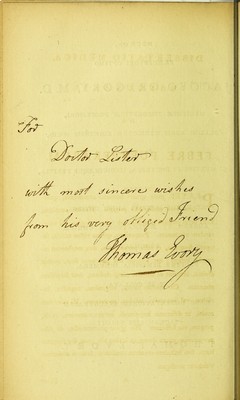 For
Doctor Lister
with most sincere wishes
from his very obliged Friend
Thomas Evory